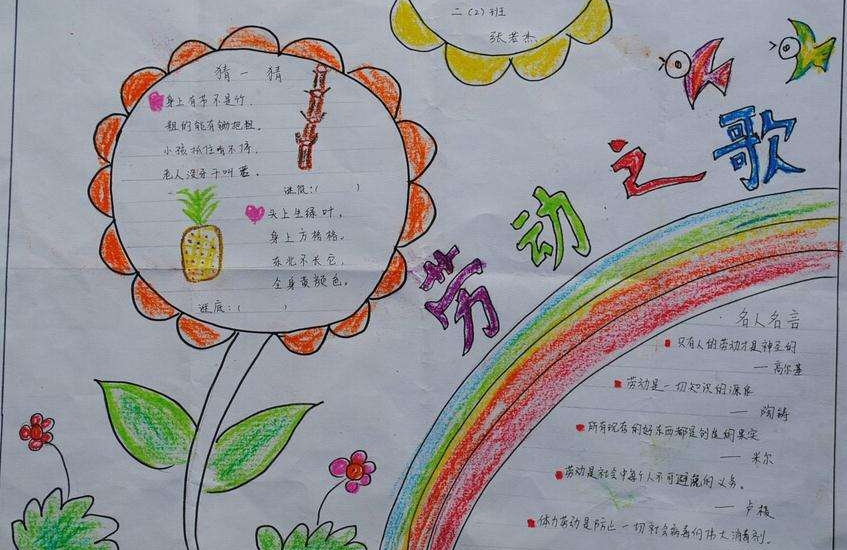 二(2)班
张若杰
劳动之歌
猜一猜
身上有节不是竹,
粗的能有锄把粗。
小孩抓住啃不够,
老人没牙干叫苦。
谜底:( )
头上生绿叶,
身上方格格。
东北不长它,
全身黄颜色。
谜底:( )
名人名言
只有人的劳动才是神圣的
——高尔基
劳动是一切知识的源泉
—— 陶铸
所有现存的好东西都是创造的果实
—— 米尔
劳动是社会中每个人不可避免的义务。
——卢梭
体力劳动是防止一切社会病毒的伟大消毒剂。